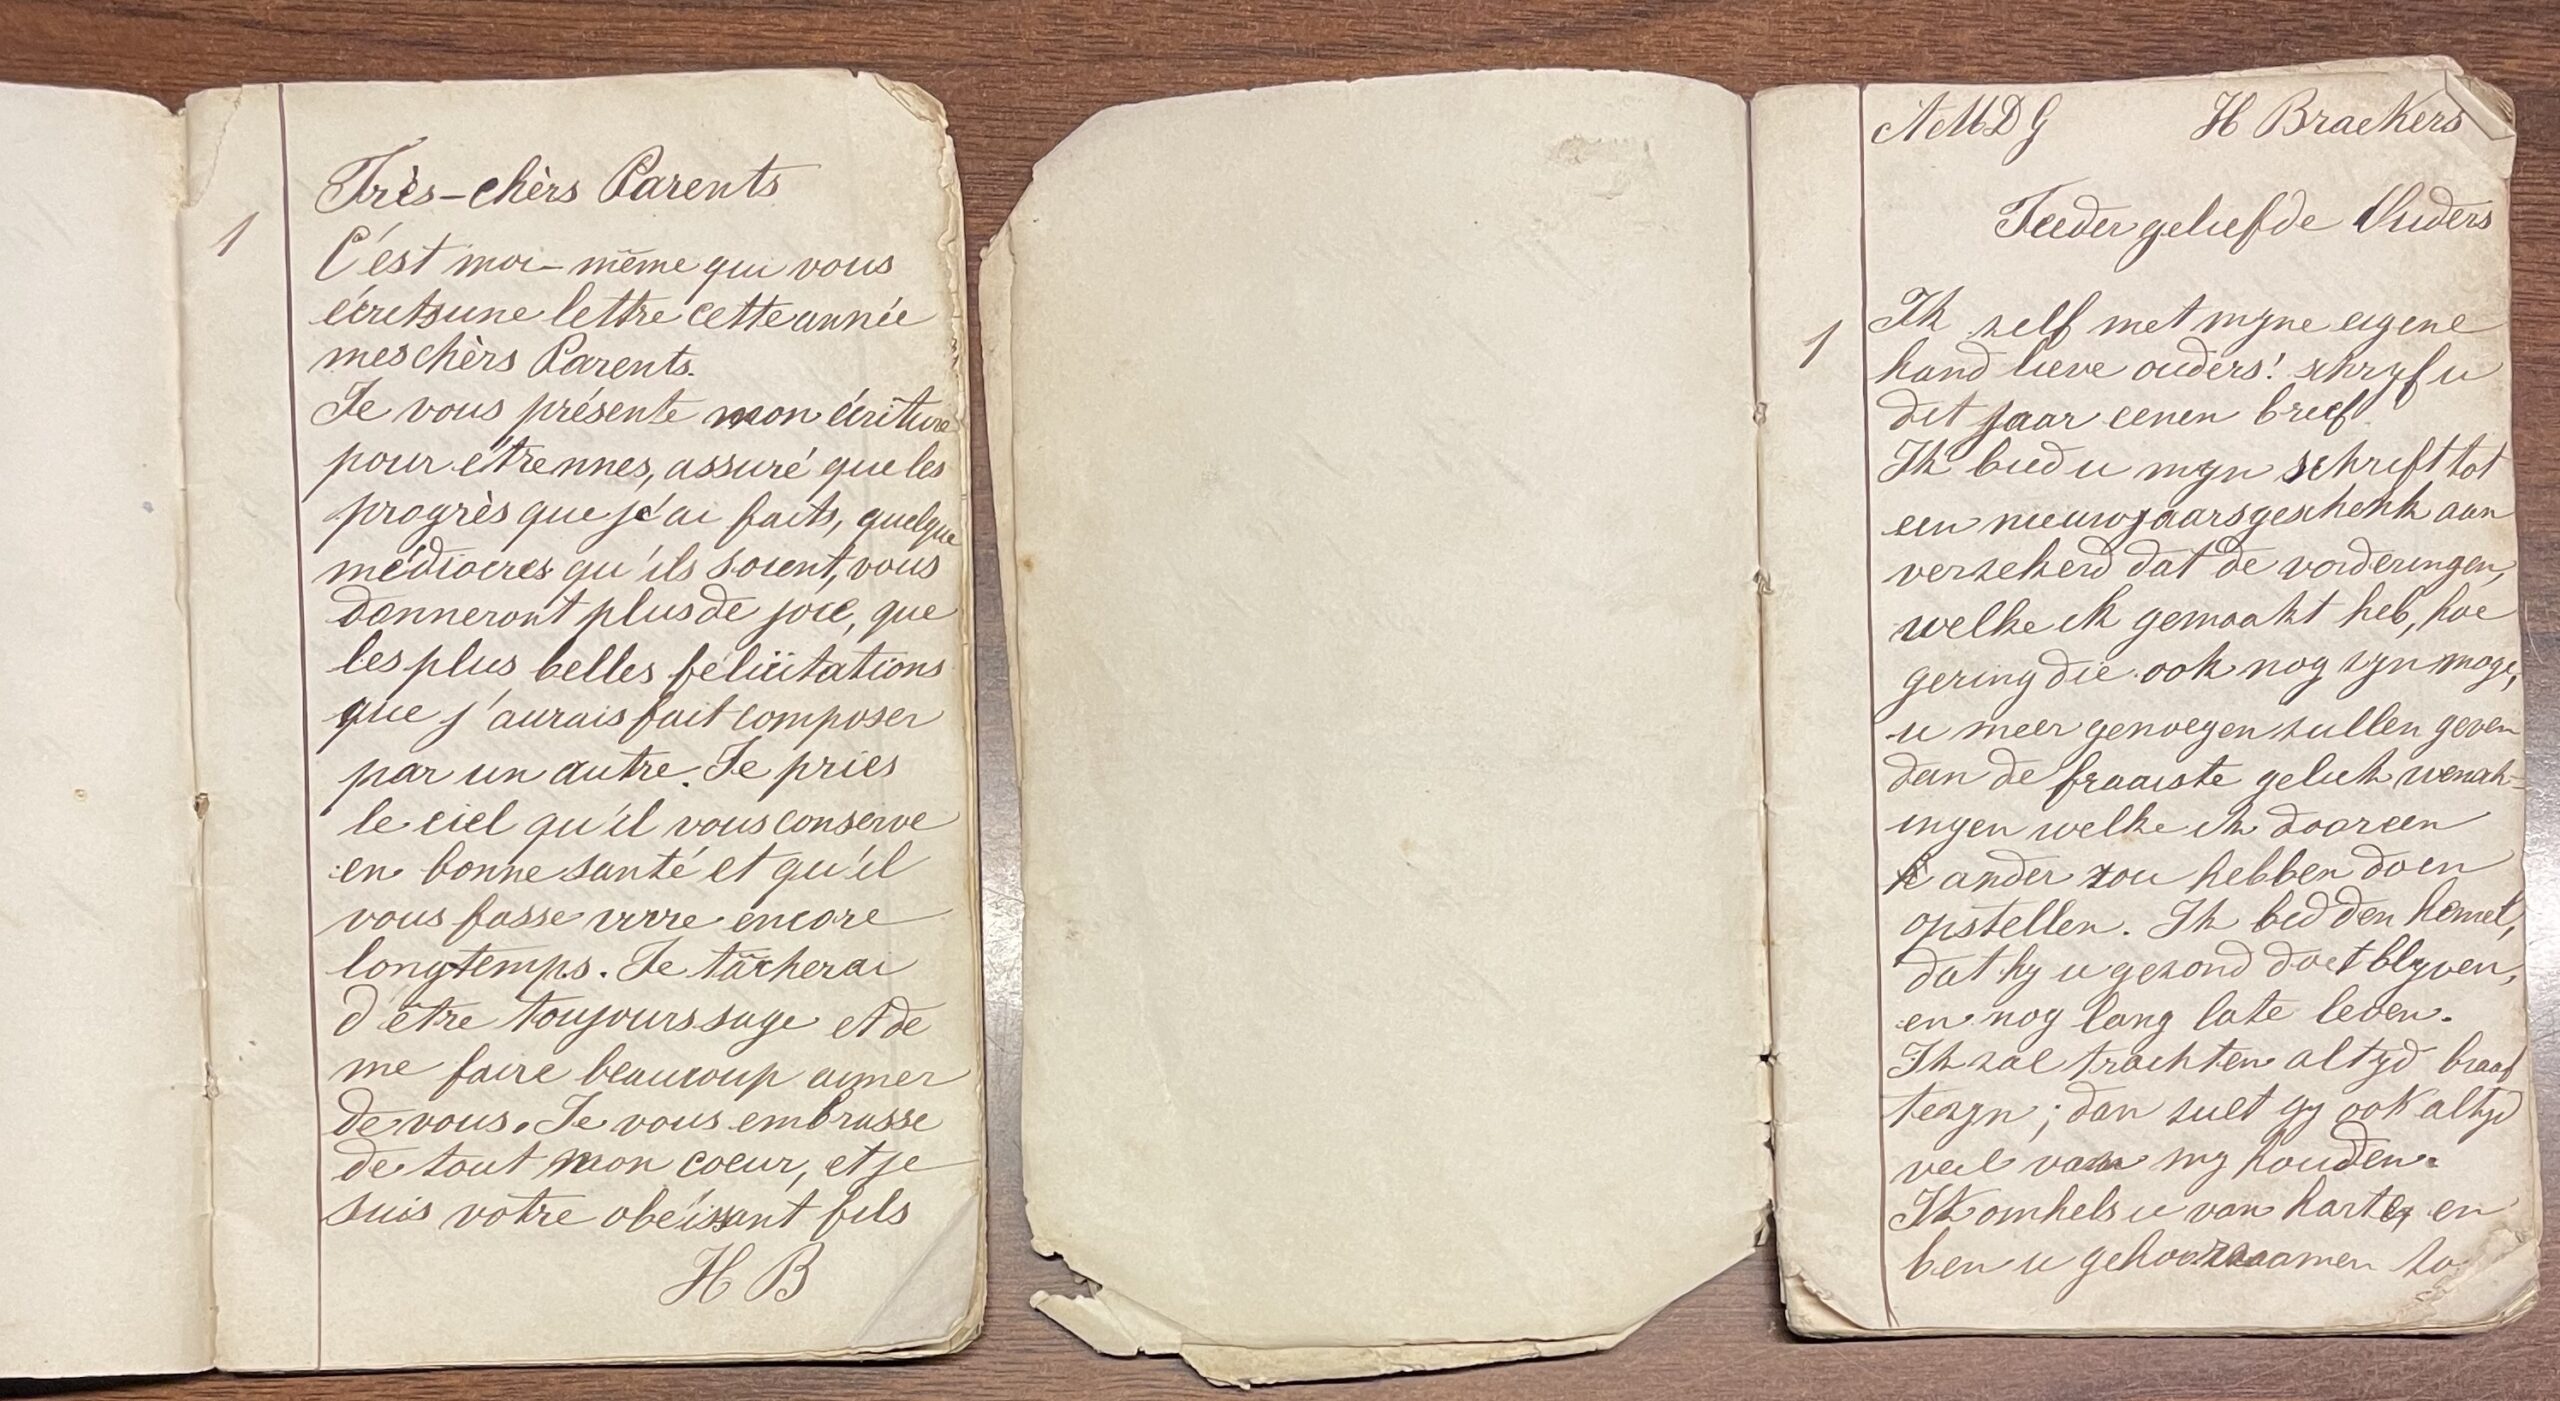 1
Très-chèrs Parents
C'est moi-même qui vous
écrits une lettre cette année
mes chèrs Parents.
Je vous présente mon écriture
pour étrennes, assuré que les
progrès que j'ai faits, quelque
médiocres qu'ils soient, vous
donneront plus de joie, que
les plus belles félicitations
que j'aurais fait composer
par un autre. Je pries
le ciel qu'il vous conserve
en bonne santé et qu'il
vous fasse vivre encore
longtemps. Je tâcherai
d'être toujours sage et de
me faire beaucoup aimer
de vous. Je vous embrasse
de tout mon coeur, et je
suis votre obéissant fils
H B
A M D G H Braekers
Teeder geliefde Ouders
1
Ik zelf met myne eigene
hand lieve ouders! schryf u
dit jaar eenen brief
Ik bied u myn schrift tot
een nieuwjaarsgeschenk aan
verzekerd dat de vorderingen,
welke ik gemaakt heb, hoe
gering die ook nog zyn moge,
u meer genoegen zullen geven
dan de fraaiste geluk wensch-
ingen welke ik door een
ander zou hebben doen
opstellen. Ik bid den hemel,
dat hy u gezond doet blyven,
en nog lang late leven.
Ik zal trachten altyd braaf
te zyn; dan zult gy ook altyd
veel van my houden.
Ik omhels u van harte, en
ben u gehoorzaamen zo